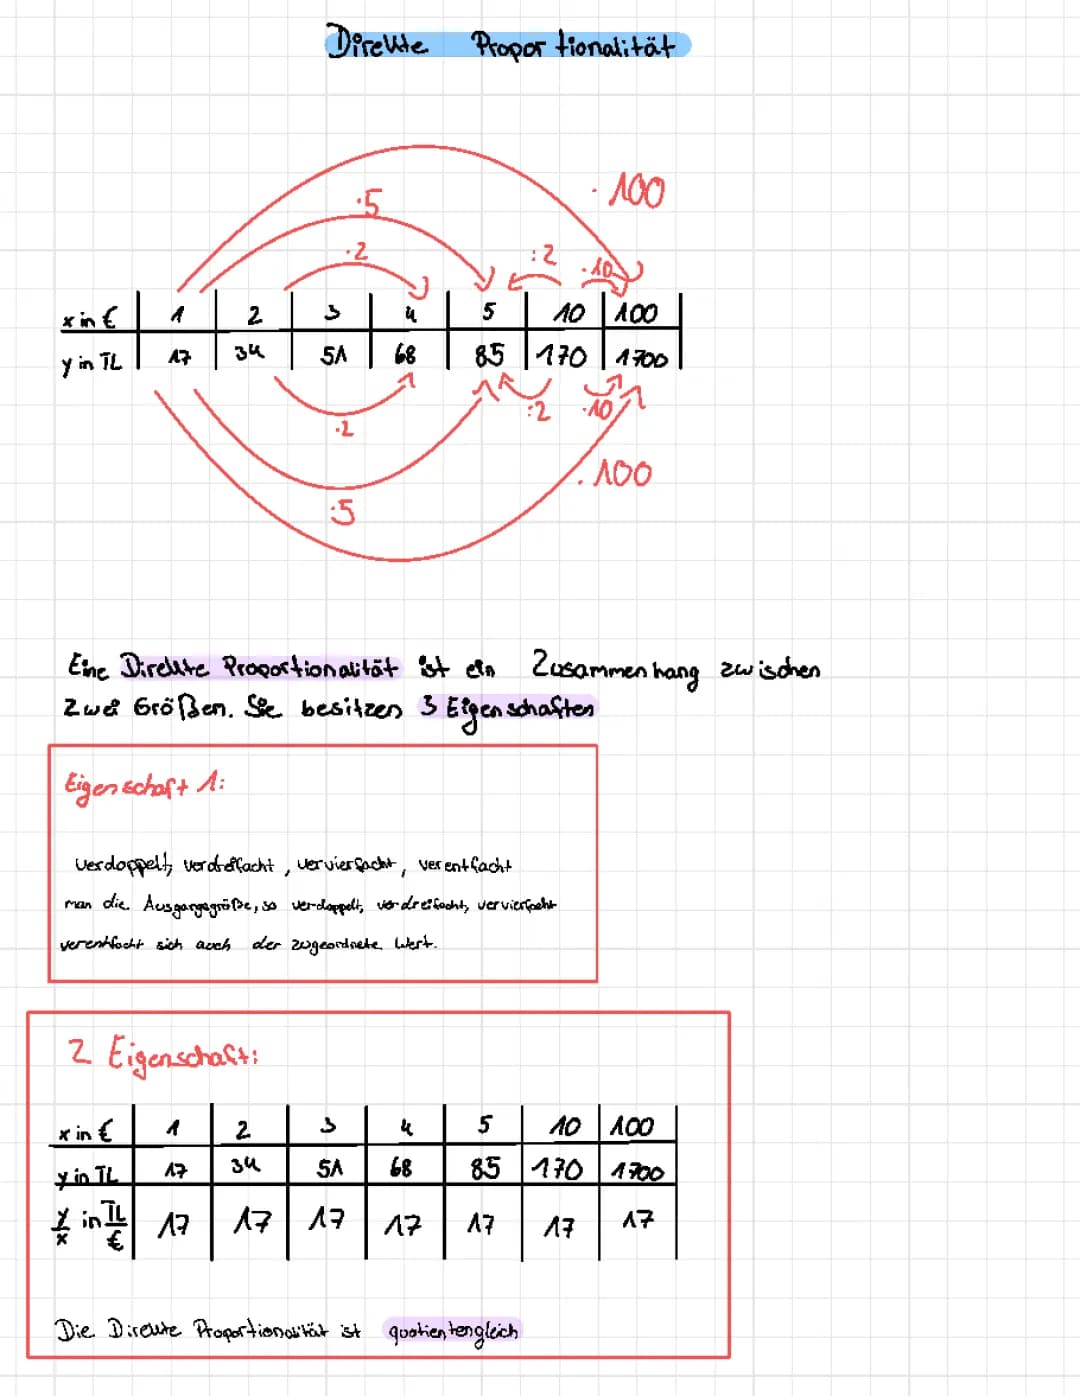 Direkte Proportionalität
· 100
·5
·2 :2 ·10
x in € 1 2 3 4 5 10 100
y in TL 17 34 51 68 85 170 1700
·2 :2 ·10
· 100
·5
Eine Direkte Proportionalität ist ein Zusammenhang zwischen
zwei Größen. Sie besitzen 3 Eigenschaften
Eigenschaft 1:
Verdoppelt, verdreifacht, vervierfacht, verentfacht
man die Ausgangsgröße, so verdoppelt, verdreifacht, vervierfacht
verentfacht sich auch der zugeordnete Wert.
2 Eigenschaft:
x in € 1 2 3 4 5 10 100
y in TL 17 34 51 68 85 170 1700
y/x in TL/€ 17 17 17 17 17 17 17
Die Direkte Proportionalität ist quotientengleich